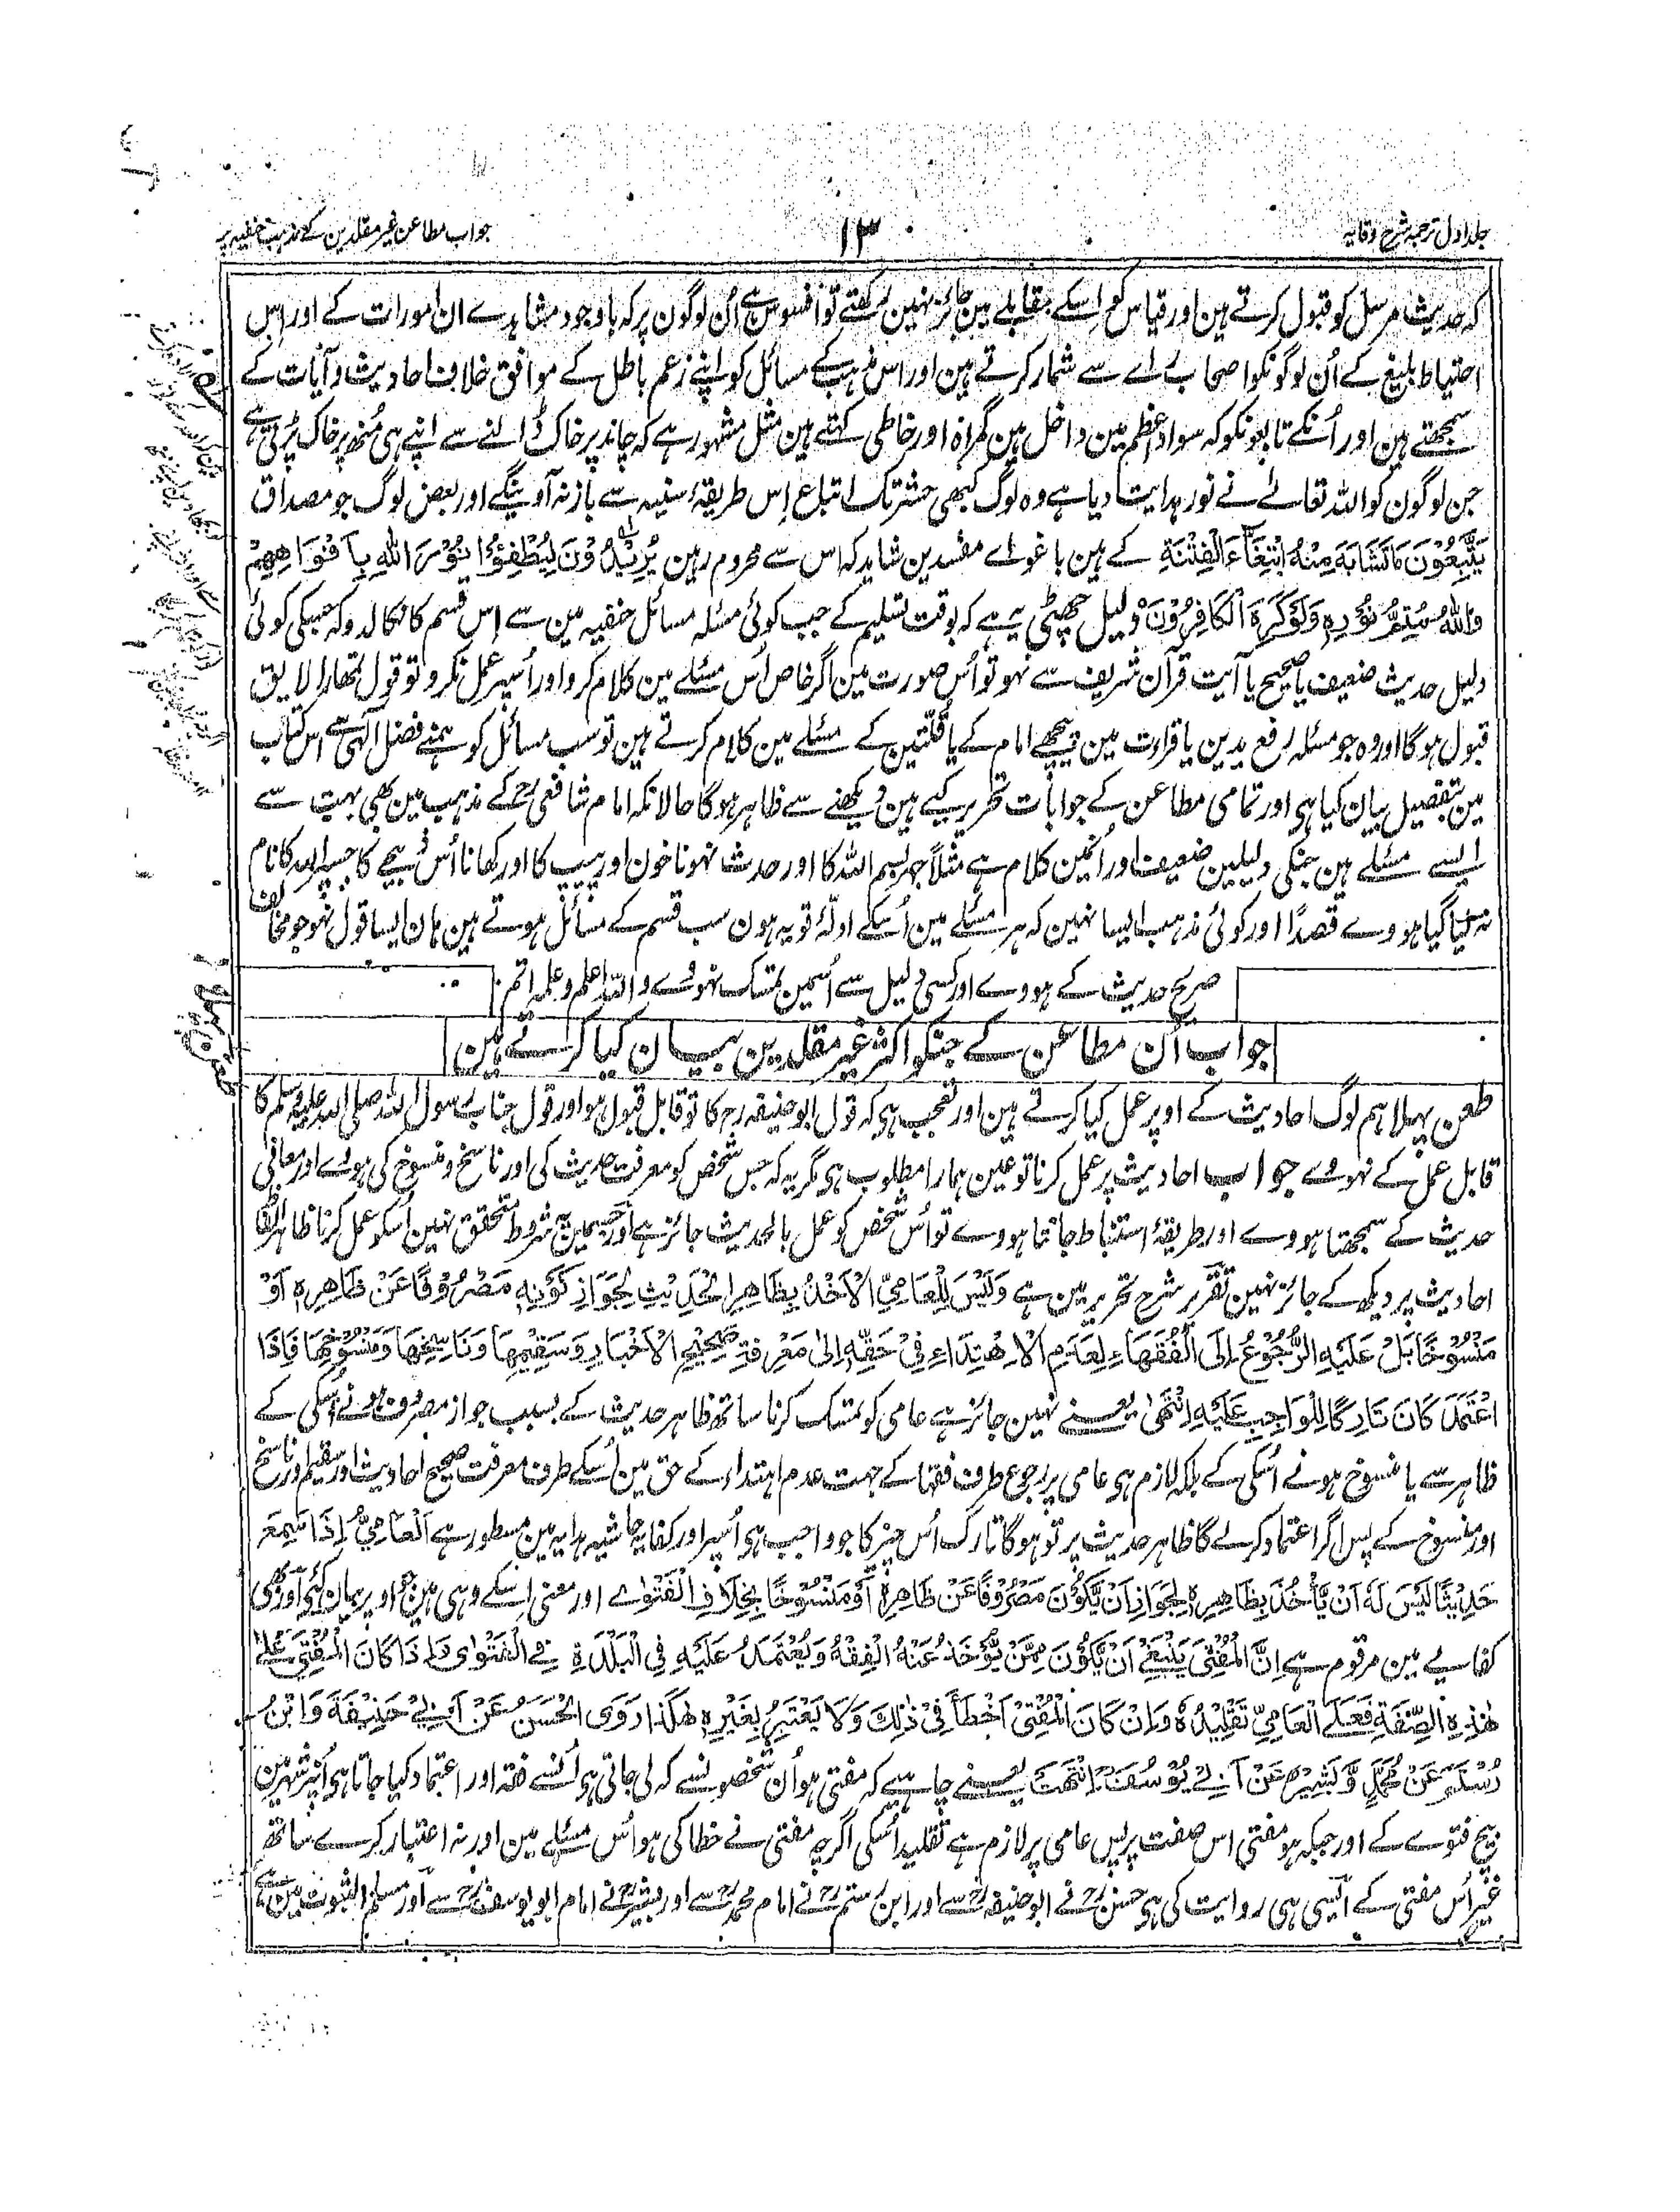 جلد اول ترجمہ شرح وقایہ
١٣
جواب مطاعن غیر مقلدین کے مذہب حنفیہ پر
کہ حدیث مرسل کو قبول کرتے ہین اور قیاس کو اسکے مقابلے مین جائز نہین رکھتے تو افسوس ہے اُن لوگون پر کہ باوجود مشاہدے ان امورات کے اور اِس
احتیاط بلیغ کے اُن لوگونکو اصحاب رائے سے شمار کرتے ہین اور اس مذہب کے مسائل کو اپنے زعم باطل کے موافق خلاف احادیث و آیات کے
سمجھتے ہین اور اُنکے تابعونکو کہ سواد اعظم مین داخل ہین گمراہ اور خاطی کہتے ہین مثل مشہور ہے کہ چاند پر خاک ڈالنے سے اپنے ہی مُنھ پر خاک پڑتی ہے
جن لوگون کو اللہ تعالےٰ نے نور ہدایت دیا ہے وہ لوگ کبھی حشر تک اتباع اِس طریقۂ سنیہ سے باز نہ آوینگے اور بعض لوگ جو مصداق
یَتَّبِعُوْنَ مَا تَشَابَهَ مِنْهُ ابْتِغَآءَ الْفِتْنَةِ کے ہین باغواے مفسدین شاید کہ اس سے محروم رہین یُرِیْدُوْنَ لِیُطْفِئُوْا نُوْرَ اللهِ بِاَفْوَاهِهِمْ
وَاللهُ مُتِمُّ نُوْرِهٖ وَلَوْ كَرِهَ الْكَافِرُوْنَ دلیل چھٹی یہ ہے کہ بوقت تسلیم کے جب کوئی مسئلہ مسائل حنفیہ مین سے اِس قسم کا نکالدو کہ جسکی کوئی
دلیل حدیث ضعیف یا صحیح یا آیت قرآن شریف سے نہو تو اُس صورت مین اگر خاص اُس مسئلے مین کلام کرو اور اُسپر عمل نکرو تو قول تمھارا لایق
قبول ہوگا اور وہ جو مسئلہ رفع یدین یا قراءت مین پیچھے امام کے یا قُلّتین کے مسئلے مین کلام کرتے ہین تو سب مسائل کو ہمنے فضل الٰہی سے اس کتاب
مین بتفصیل بیان کیا ہی اور تمامی مطاعن کے جوابات تحریر کیے ہین دیکھنے سے ظاہر ہوگا حالانکہ امام شافعیؒ کے مذہب مین بھی بہت سے
ایسے مسئلے ہین جنکی دلیلین ضعیف اور اُنمین کلام ہے مثلاً جہر بسم اللہ کا اور حدث نہونا خون اور پیپ کا اور کھانا اُس ذبیحے کا جسپر اللہ کا نام
نہ لیا گیا ہووے قصدًا اور کوئی مذہب ایسا نہین کہ ہر مسئلے مین اُسکے ادلّۂ قویہ ہون سب قسم کے مسائل ہوتے ہین ہان ایسا قول نہو جو مخالف
صریح حدیث کے ہووے اور کسی دلیل سے اُسمین تمسک نہووے واللہ اعلم وعلمہ اتم
جواب اُن مطاعن کے جنکو اکثر غیر مقلدین بیان کیا کرتے ہین
طعن پہلا ہم لوگ احادیث کے اوپر عمل کیا کرتے ہین اور تعجب ہی کہ قول ابو حنیفہ رح کا تو قابل قبول ہو اور قول جناب رسول اللہ صلی اللہ علیہ وسلم کا
قابل عمل کے نہووے جواب احادیث پر عمل کرنا تو عین ہمارا مطلوب ہی مگر یہ کہ جس شخص کو معرفت حدیث کی اور ناسخ و منسوخ کی ہووے اور معانی
حدیث کے سمجھتا ہووے اور طریقۂ استنباط جانتا ہووے تو اُس شخص کو عمل بالحدیث جائز ہے اور جسمین یہ شروط متحقق نہین اُسکو عمل کرنا ظاہر الفاظ
احادیث پر دیکھ کے جائز نہین تقریر شرح تحریر مین ہے وَلَیْسَ لِلْعَامِیِّ الْاَخْذُ بِظَاهِرِ الْحَدِیْثِ لِجَوَازِ كَوْنِهٖ مَصْرُوْفًا عَنْ ظَاهِرِهٖ اَوْ
مَنْسُوْخًا بَلْ عَلَیْهِ الرُّجُوْعُ اِلَی الْفُقَهَاءِ لِعَدَمِ الْاِهْتِدَاءِ فِیْ حَقِّهٖ اِلٰی مَعْرِفَةِ صَحِیْحِ الْاَخْبَارِ وَسَقِیْمِهَا وَنَاسِخِهَا وَمَنْسُوْخِهَا فَاِذَا
اعْتَمَدَ كَانَ تَارِكًا لِلْوَاجِبِ عَلَیْهِ اِنْتَهٰی یعنے نہین جائز ہے عامی کو تمسک کرنا ساتھ ظاہر حدیث کے بسبب جواز مصروف ہونے اُسکی کے
ظاہر سے یا منسوخ ہونے اُسکی کے بلکہ لازم ہی عامی پر رجوع طرف فقہا کے جہت عدم اہتداء کے حق مین اُسکے طرف معرفت صحیح احادیث اور سقیم اور ناسخ
اور منسوخ کے پس اگر اعتماد کرلے گا ظاہر حدیث پر تو ہوگا تارک اُس چیز کا جو واجب ہی اُسپر اور کفایہ حاشیہ ہدایہ مین مسطور ہے اَلْعَامِیُّ اِذَا سَمِعَ
حَدِیْثًا لَیْسَ لَهٗ اَنْ یَّاْخُذَ بِظَاهِرِهٖ لِجَوَازِ اَنْ یَّكُوْنَ مَصْرُوْفًا عَنْ ظَاهِرِهٖ اَوْ مَنْسُوْخًا بِخِلَافِ الْفَتْوٰے اور معنی اِسکے وہی ہین جو اوپر بیان کیے اور بھی
کفایے مین مرقوم ہے اِنَّ الْمُفْتِیَ یَنْبَغِیْ اَنْ یَّكُوْنَ مِمَّنْ یُّؤْخَذُ عَنْهُ الْفِقْهُ وَیُعْتَمَدُ عَلَیْهِ فِی الْبَلْدَةِ فِی الْفَتْوٰی وَاِذَا كَانَ الْمُفْتِیْ عَلٰی
هٰذِهِ الصِّفَةِ فَعَلَی الْعَامِیِّ تَقْلِیْدُهٗ وَاِنْ كَانَ الْمُفْتِیْ اَخْطَأَ فِیْ ذٰلِكَ وَلَا یَعْتَبِرُ بِغَیْرِهٖ هٰكَذَا رَوَی الْحَسَنُ عَنْ اَبِیْ حَنِیْفَةَ وَابْنُ
رُسْتَمَ عَنْ مُحَمَّدٍ وَّبَشِیْرٌ عَنْ اَبِیْ یُوْسُفَ اِنْتَهَتْ یعنے چاہیے کہ مفتی ہو اُن شخصونسے کہ لی جاتی ہی اُنسے فقہ اور اعتماد کیا جاتا ہی اُنپر شہر مین
بیچ فتوے کے اور جبکہ ہو مفتی اس صفت پر پس عامی پر لازم ہے تقلید اُسکی اگرچہ مفتی نے خطا کی ہو اُس مسئلے مین اور نہ اعتبار کرے ساتھ
غیر اُس مفتی کے ایسی ہی روایت کی ہی حسنؒ نے ابو حنیفہؒ سے اور ابن رستمؒ نے امام محمدؒ سے اور بشیرؒ نے امام ابو یوسفؒ سے اور مسلم الثبوت مین ہے